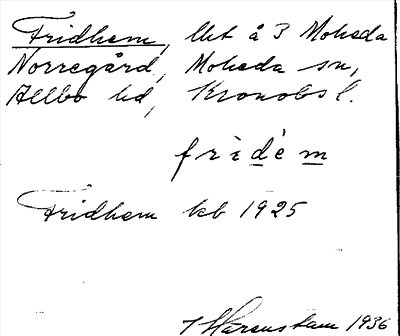 Fridhem, lht å 3 Moheda
Norregård, Moheda sn,
Allbo hd, Kronobs l.
frìdè m
Fridhem kb 1925
Harenstam 1936